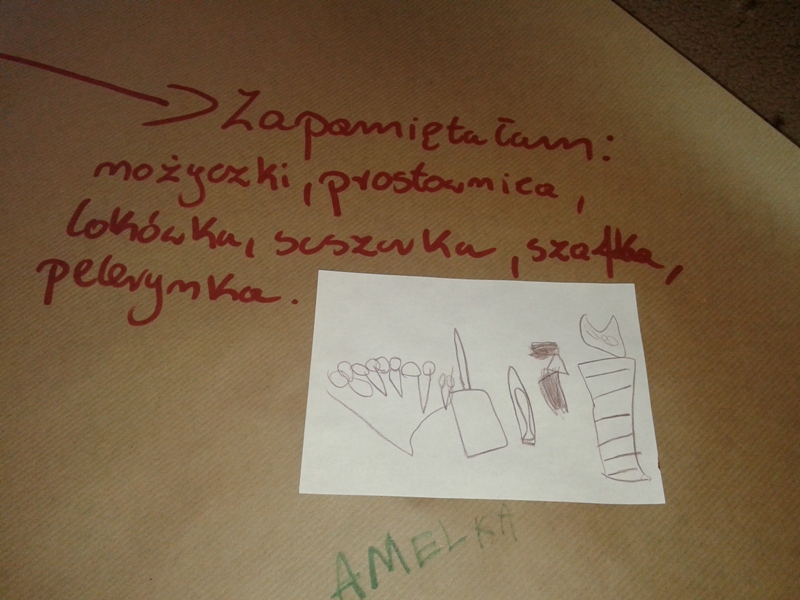 Zapamiętałam:
nożyczki, prostownica,
lokówka, suszarka, szafka,
pelerynka.
AMELKA